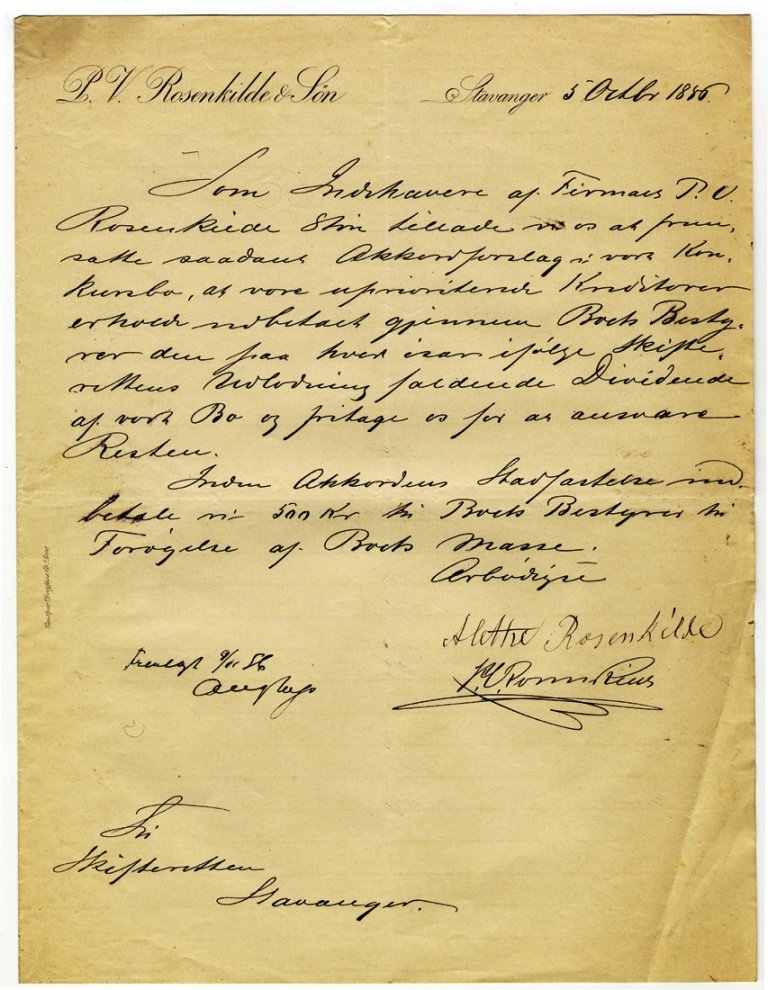 P. V. Rosenkilde & Søn Stavanger 5 Octbr 1886.
Som Indehavere af Firmaet P. V.
Rosenkilde & Søn tillade vi os at frem-
sætte saadant Akkordforslag i vort Kon-
kursbo, at vore uprioriterede Kreditorer
erholde udbetalt gjennem Boets Besty-
rer den paa hver især ifølge Skifte-
rettens Udlodning faldende Dividende
af vort Bo og fritage os for at ansvare
Resten.
Inden Akkordens Stadfæstelse ind-
betale vi 500 Kr til Boets Bestyrer til
Forøgelse af Boets Masse.
Ærbødigst
Alethe Rosenkilde
P.V. Rosenkilde
Fremlagt 9/11 86
Til
Skifteretten
Stavanger.